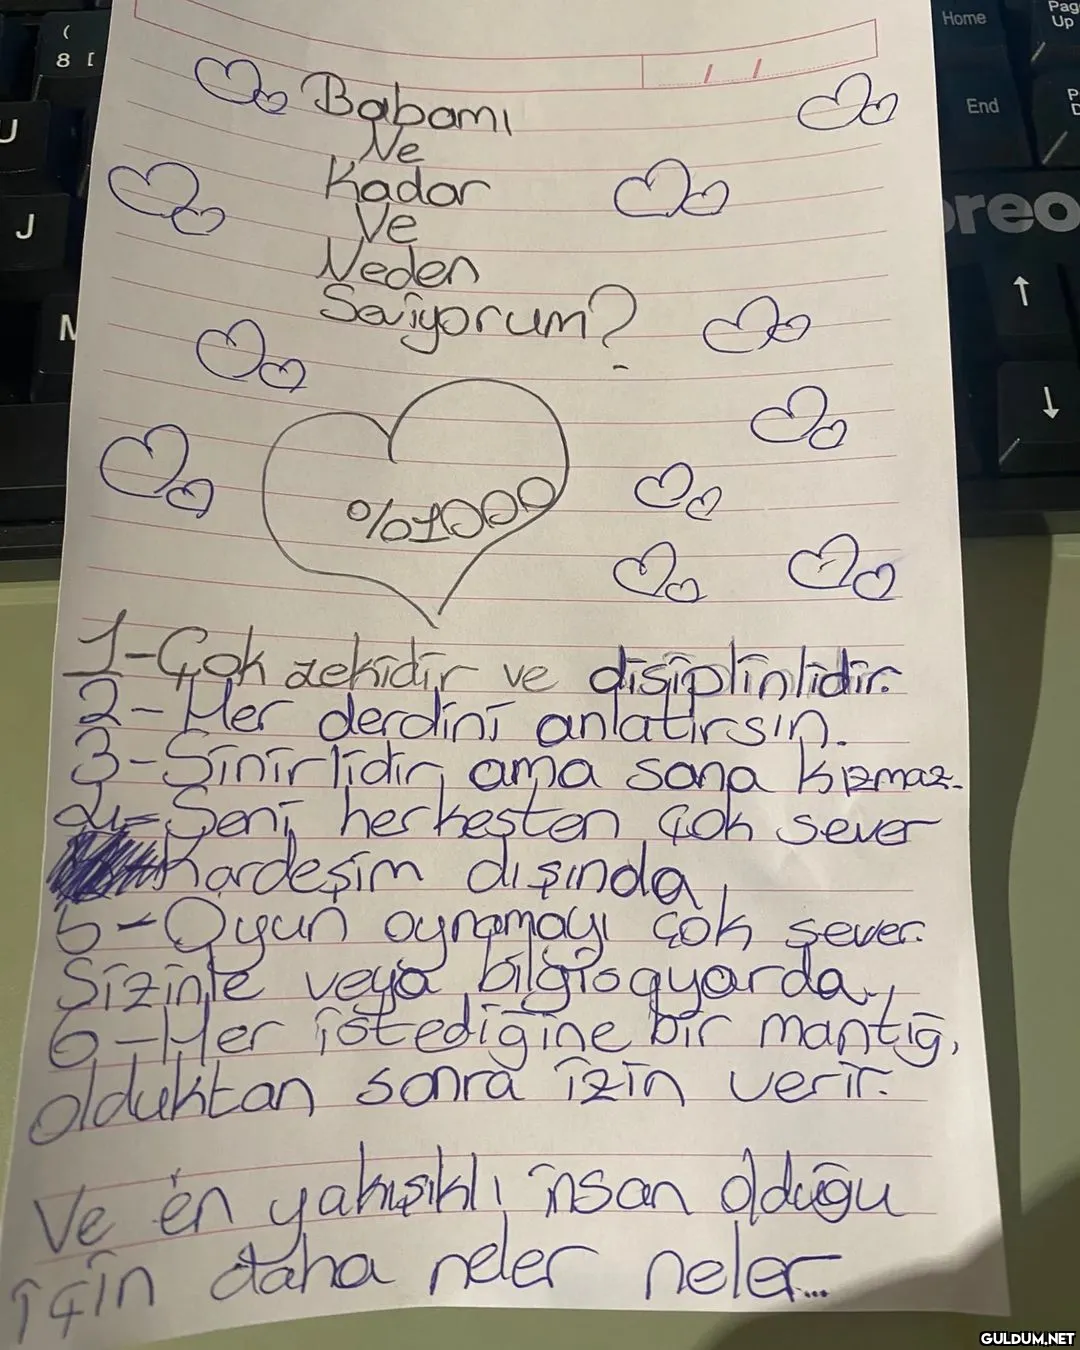 Babamı
Ne
Kadar
Ve
Neden
Seviyorum?
%1000
1-Çok zekidir ve disiplinlidir.
2-Her derdini anlatırsın.
3-Sinirlidir ama sana kızmaz.
4-Seni herkesten çok sever
Kardeşim dışında,
5-Oyun oynamayı çok sever.
Sizinle veya bilgisayarda.
6-Her istediğine bir mantığı
olduktan sonra izin verir.
Ve en yakışıklı insan olduğu
için daha neler neler...
(
8 [
U
J
M
Home
Page
Up
End
oreo
↑
↓
GULDUM.NET